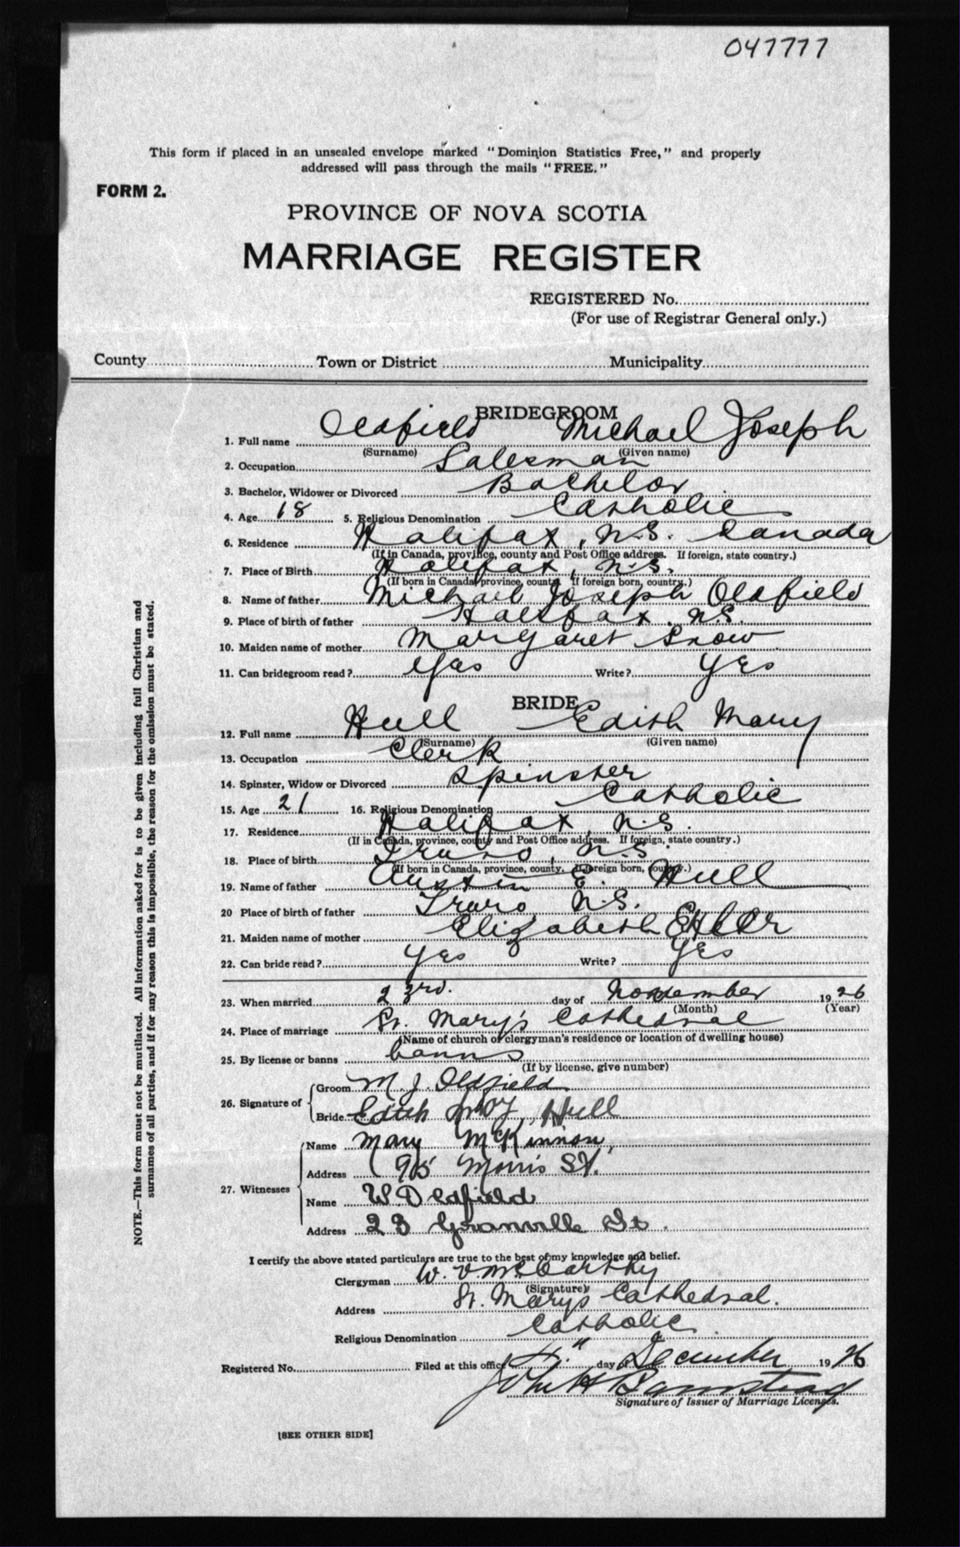 047777
This form if placed in an unsealed envelope marked "Dominion Statistics Free," and properly
addressed will pass through the mails "FREE."
FORM 2.
PROVINCE OF NOVA SCOTIA
MARRIAGE REGISTER
REGISTERED No.
(For use of Registrar General only.)
County Town or District Municipality
BRIDEGROOM
1. Full name Oldfield Michael Joseph
(Surname) (Given name)
2. Occupation Salesman
3. Bachelor, Widower or Divorced Bachelor
4. Age 18 5. Religious Denomination Catholic
6. Residence Halifax, N.S. Canada
(If in Canada, province, county and Post Office address. If foreign, state country.)
7. Place of Birth Halifax, N.S.
(If born in Canada province, county. If foreign born, country.)
8. Name of father Michael Joseph Oldfield
9. Place of birth of father Halifax, N.S.
10. Maiden name of mother Margaret Snow
11. Can bridegroom read? Yes Write? Yes
BRIDE
12. Full name Hull Edith Mary
(Surname) (Given name)
13. Occupation Clerk
14. Spinster, Widow or Divorced Spinster
15. Age 21 16. Religious Denomination Catholic
17. Residence Halifax, N.S.
(If in Canada, province, county and Post Office address. If foreign, state country.)
18. Place of birth Truro, N.S.
(If born in Canada, province, county. If foreign born, country.)
19. Name of father Austin E. Hull
20 Place of birth of father Truro, N.S.
21. Maiden name of mother Elizabeth
22. Can bride read? Yes Write? Yes
23. When married 23rd. day of November 1926
(Month) (Year)
24. Place of marriage St. Mary's Cathedral
(Name of church or clergyman's residence or location of dwelling house)
25. By license or banns banns
(If by license, give number)
26. Signature of Groom M. J. Oldfield
Bride Edith May Hull
27. Witnesses Name Mary McKinnon
Address 95 Morris St.
Name W Oldfield
Address 23 Granville St.
I certify the above stated particulars are true to the best of my knowledge and belief.
Clergyman W. McCarthy
(Signature)
Address St. Marys Cathedral.
Religious Denomination Catholic
Registered No. Filed at this office day of December 1926
John H
Signature of Issuer of Marriage Licenses.
[SEE OTHER SIDE]
NOTE.—This form must not be mutilated. All information asked for is to be given including full Christian and
surnames of all parties, and if for any reason this is impossible, the reason for the omission must be stated.